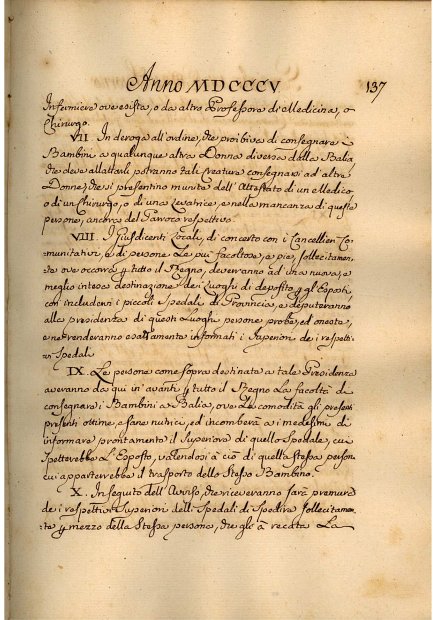 Anno MDCCCV 137
Infermiere ove esista, o da altro Professore di Medicina, o
Chirurgo.
VII. In deroga all'ordine, che proibiva di consegnare i
Bambini a qualunque altra Donna diversa dalla Balia,
che deve allattarli potranno tali Creature consegnarsi ad altre
Donne, che si presentino munite dell'Attestato di un Medico
o di un Chirurgo, o di una Levatrice, e nella mancanza di queste
persone, ancora del Parroco respettivo.
VIII. I Giusdicenti Locali, di concerto con i Cancellieri Co-
munitativi, e di persone Le più facoltose, e pie, sollecitamen-
te ove occorra p tutto il Regno, deveranno ad una nuova, e
meglio intesa destinazione dei Luoghi di deposito p gl'Esposti
con includervi i piccoli Spedali di Provincia, e deputeranno
alla presidenza di questi Luoghi persone probe, ed oneste,
e ne renderanno esattamente informati i Superiori dei respetti-
vi Spedali
IX. Le persone come sopra destinate a tale Presidenza
averanno da qui in avanti p tutto il Regno La facoltà di
consegnare i Bambini a Balia, ove Le comodità gli presenti
presenti ottime, e sane nutrici, ed incomberà a i medesimi di
informare prontamente il Superiore di quello Spedale, cui
spetterebbe L'Esposto, valendosi a ciò di quella stessa person
cui apparterrebbe il trasporto dello Stesso Bambino.
X. In seguito dell'Avviso, che riceveranno sarà premura
de i respettivi Superiori delli Spedali di Spedire sollecitamen-
te p mezzo della Stessa persona, che gli à recata La